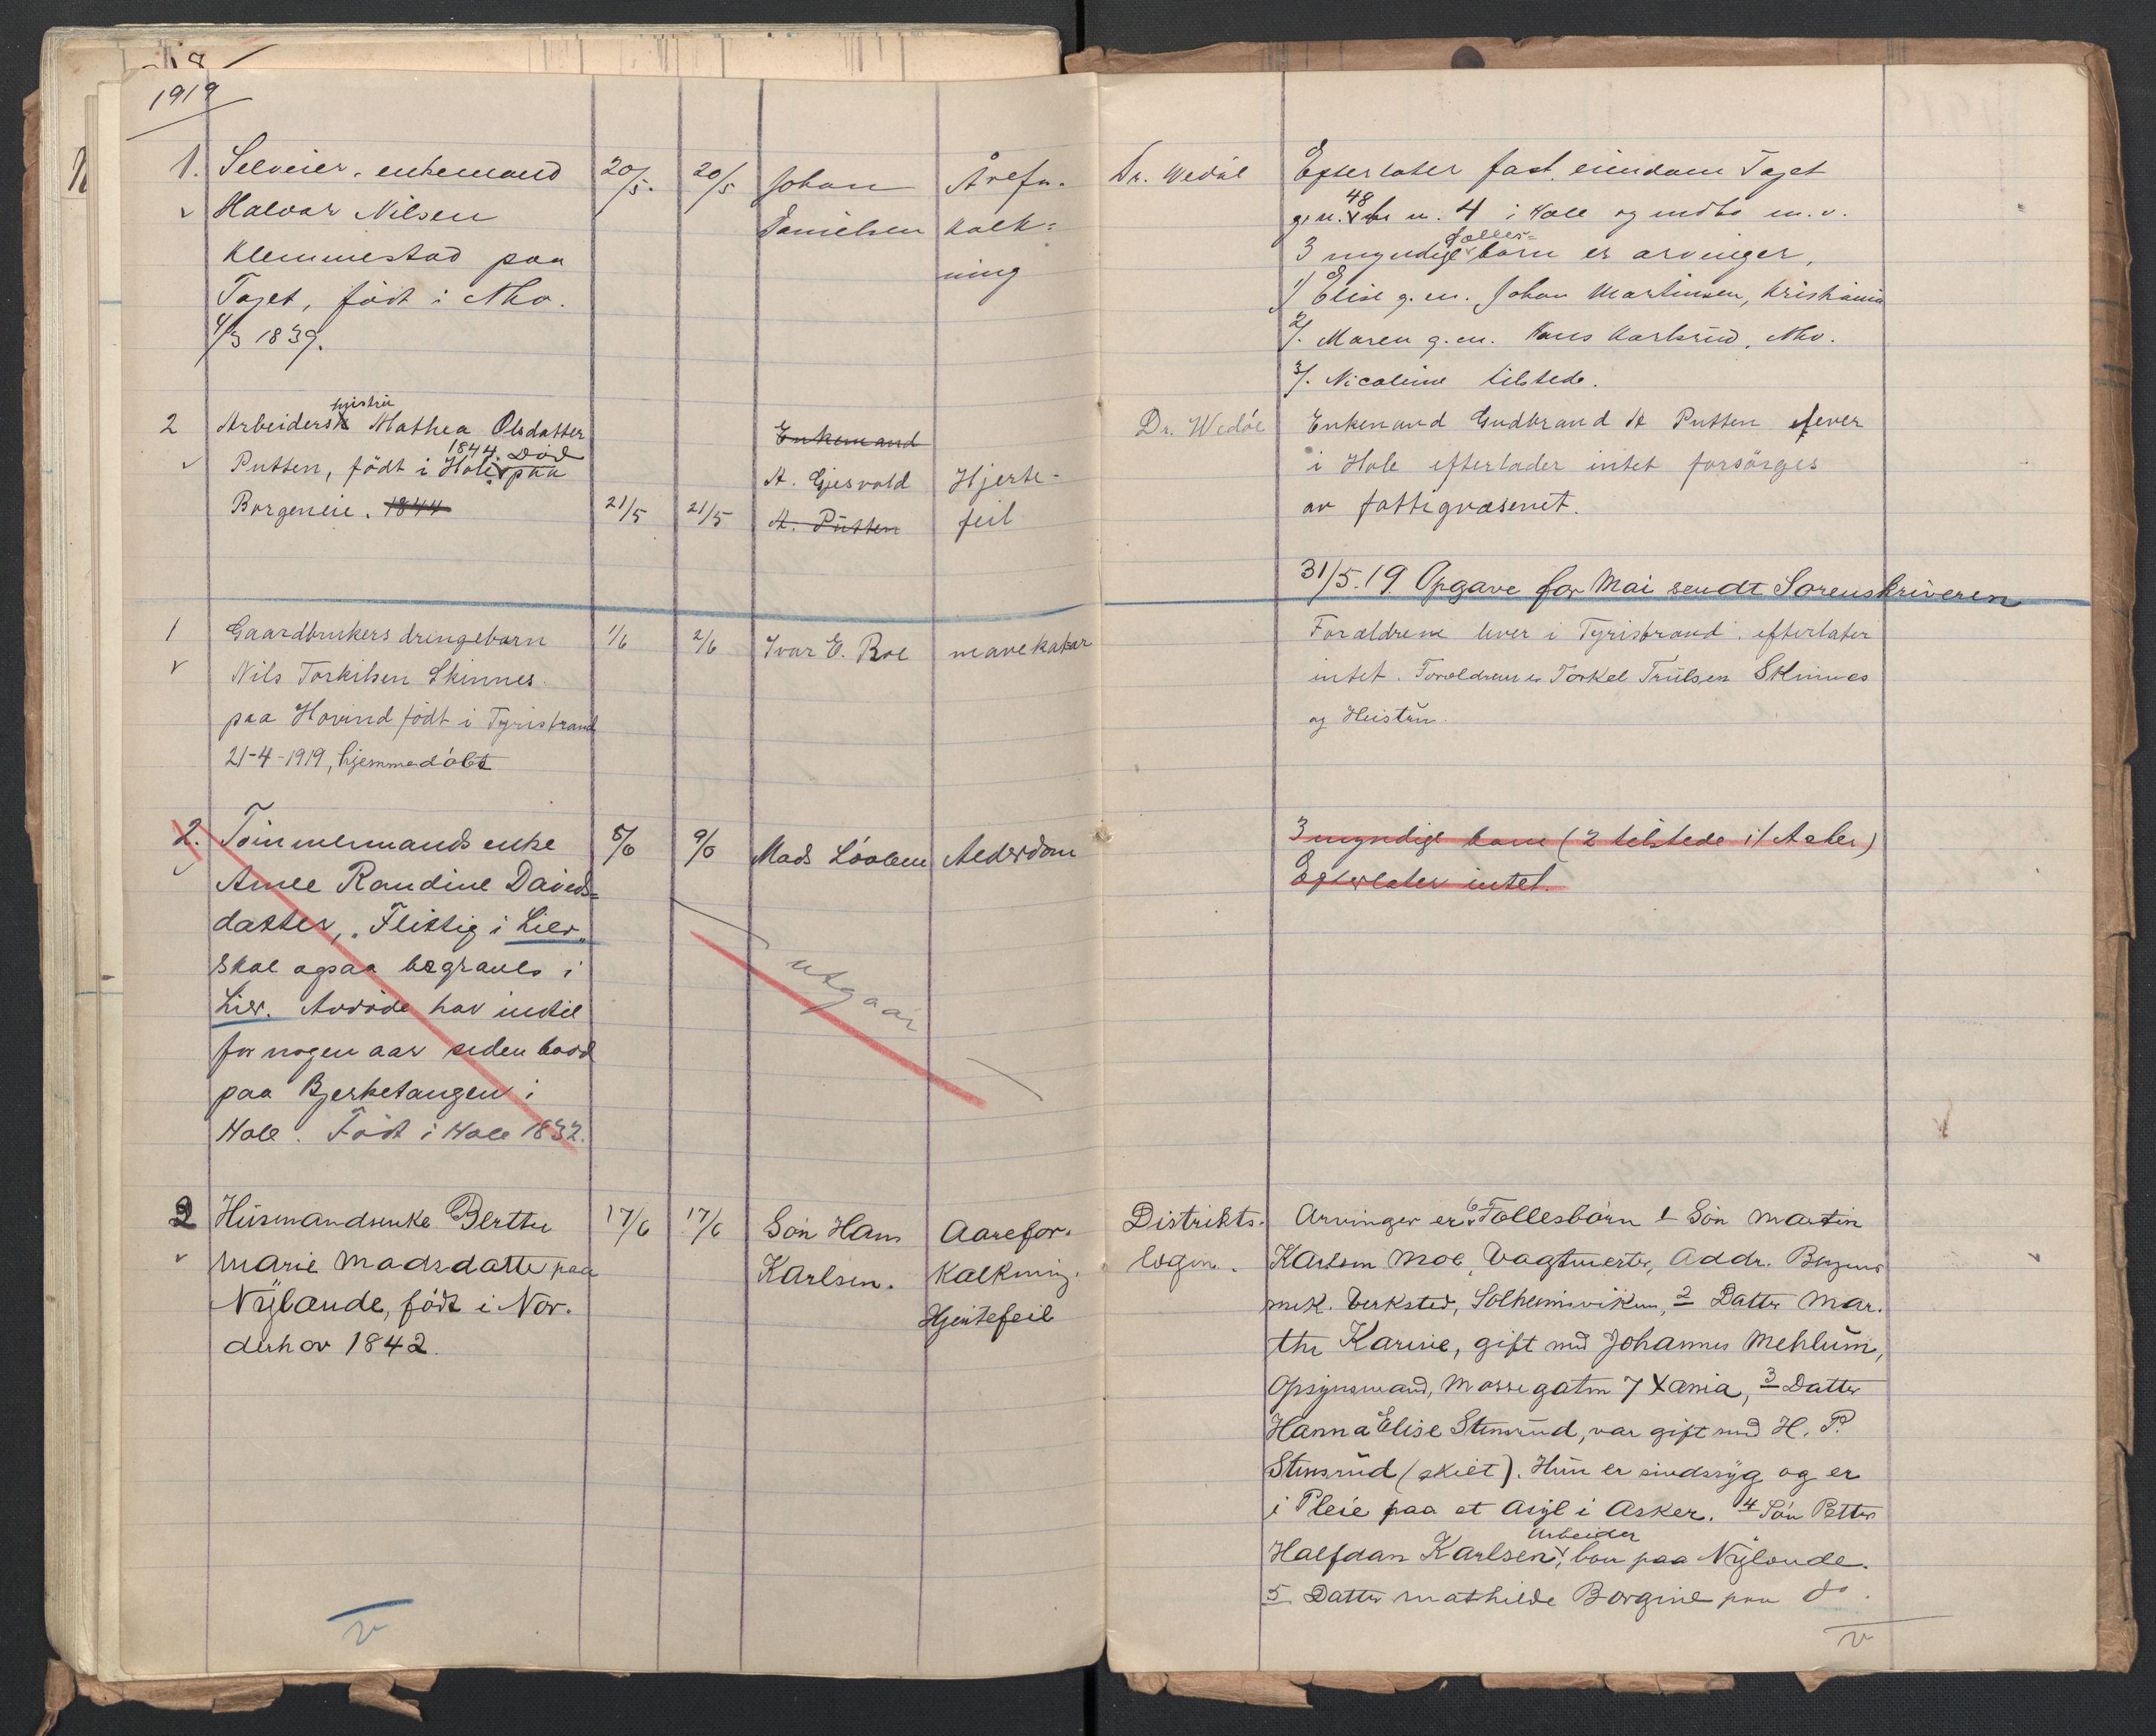 1919
1. Selveier, enkemand 20/5. 20/5 Johan Årefor-
Halvor Nilsen Danielsen kalk=
Klemmestad paa ning
Taget, født i Nho.
4/3 1839.
2 Arbeiders hustru Mathea Olsdatter Enkemand
Putten, født i Hole 1844. Död paa A. Gjesvold Hjerte-
Borgeneie. 1844 21/5 21/5 A. Putten feil
1 Gaardbrukers drengebarn 1/6 2/6 Ivar E. Roe mavekatar
Nils Torkilsen Skinnes.
paa Hovind födt i Tyristrand
21-4-1919, hjemmedöbt
2. Tömmermands enke 8/6 9/6 Mads Alderdom
Anne Randine Davids=
datter, "Flittig i Lier"
skal ogsaa begraves i
Lier. Avdöde har indtil utgaar
for nogen aar siden bodd
paa Bjerketangen i
Hole. Födt i Hole 1832.
2 Husmandsenke Berthe 17/6 17/6 Sön Hans Aarefor-
Marie Madsdatter paa Karlsen. kalkning.
Nylande, födt i Nor- Hjertefeil
derhov 1842.
Dr. Wedöe Efterlater fast eiendom Taget
g.n. 48 br n. 4 i Hole og indbo m.v.
3 myndige fælles= børn er arvinger,
1/ Elise g.m. Johan Martinsen, Kristiania
2/. Maren g.m. Hans Karlsrud, Nho.
3/. Nicoline tilstede.
Dr. Wedöe Enkemand Gudbrand A Putten lever
i Hole efterlader intet forsörges
av fattigvæsenet.
31/5.19. Opgave for Mai sendt Sorenskriveren
Forældrene lever i Tyristrand. efterlater
intet. Forældrene er Torkel Trulsen Skinnes
og Hustru.
3 myndige barn (2 tilstede 1/ Asker)
Efterlater intet.
Distrikts- Arvinger er 6 Fællesbörn 1 Sön Martin
lægen. Karlsen Moe, Vagtmester, Addr. Bergens
mek. Verksted, Solheimsviken, 2 Datter Mar-
the Karine, gift med Johannes Mehlum,
Opsynsmand, Mossegaten 7 Xania, 3 Datter
Hanna Elise Stensrud, var gift med H. P.
Stensrud (skilt). Hun er sindssyg og er
i Pleie paa et Asyl i Asker. 4 Sön Petter
Halfdan Karlsen, arbeider bor paa Nylande.
5 Datter Mathilde Borgine paa do.